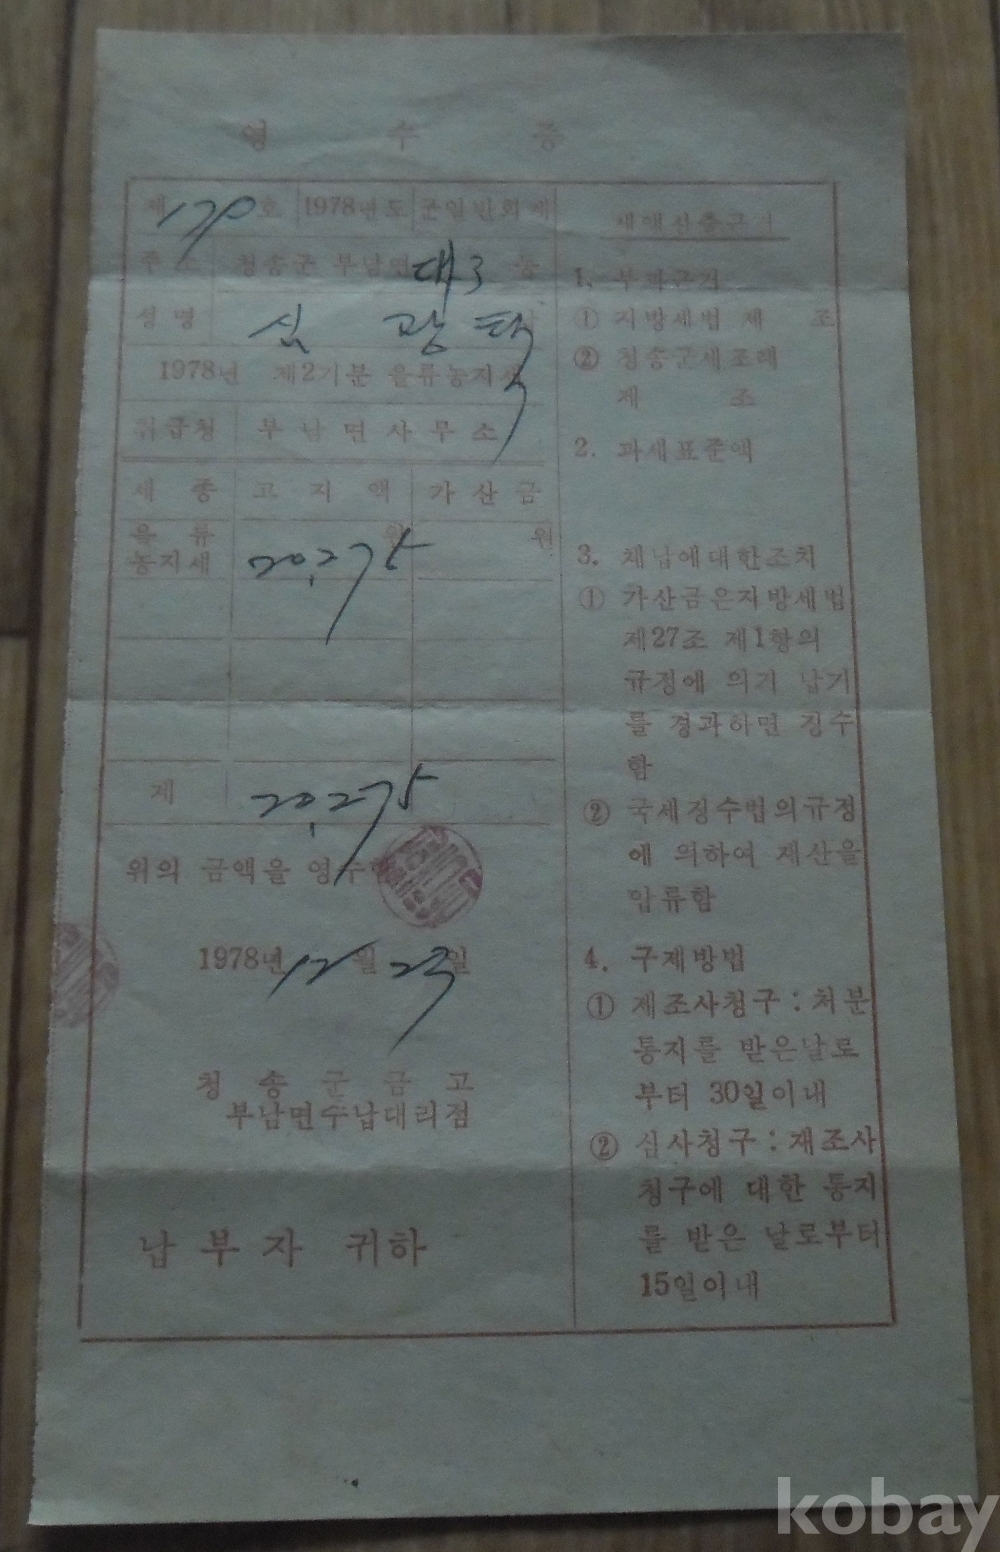 영 수 증
제 170 호 1978년도 군일반회계
주소 청송군 부남면 대3 동
성명 심 광 택
1978년 제2기분 을류농지세
취급청 부남면사무소
세 종 고 지 액 가 산 금
을 류 원 원
농지세 20,275
계 20,275
위의 금액을 영수함
1978년 12월 23일
청 송 군 금 고
부남면수납대리점
납 부 자 귀하
세액산출근거
1. 부과근거
① 지방세법 제 조
② 청송군세조례
제 조
2. 과세표준액
3. 체납에대한조치
① 가산금은지방세법
제27조 제1항의
규정에 의거 납기
를 경과하면 징수
함
② 국세징수법의규정
에 의하여 재산을
압류함
4. 구제방법
① 재조사청구 : 처분
통지를 받은날로
부터 30일이내
② 심사청구 : 재조사
청구에 대한 통지
를 받은 날로부터
15일이내
kobay